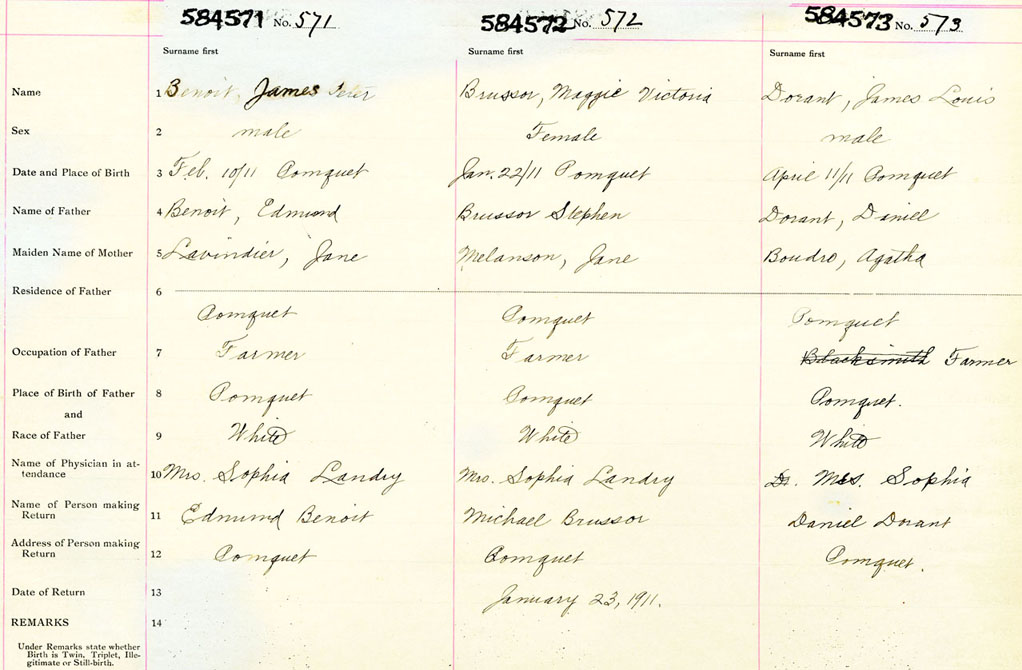 584571 No. 571 584572 No. 572 584573 No. 573
Surname first Surname first Surname first
Name 1 Benoit, James Peter Brussor, Maggie Victoria Dorant, James Louis
Sex 2 male Female male
Date and Place of Birth 3 Feb. 10/11 Pomquet Jan. 22/11 Pomquet April 11/11 Pomquet
Name of Father 4 Benoit, Edmund Brussor Stephen Dorant, Daniel
Maiden Name of Mother 5 Lavindier, Jane Melanson, Jane Boudro, Agatha
Residence of Father 6
Pomquet Pomquet Pomquet
Occupation of Father 7 Farmer Farmer Blacksmith Farmer
Place of Birth of Father 8 Pomquet Pomquet Pomquet.
and
Race of Father 9 White White White
Name of Physician in at-
tendance 10 Mrs. Sophia Landry Mrs. Sophia Landry Dr. Mrs. Sophia
Name of Person making
Return 11 Edmund Benoit Michael Brussor Daniel Dorant
Address of Person making
Return 12 Pomquet Pomquet Pomquet.
Date of Return 13 January 23, 1911.
REMARKS 14
Under Remarks state whether
Birth is Twin, Triplet, Ille-
gitimate or Still-birth.